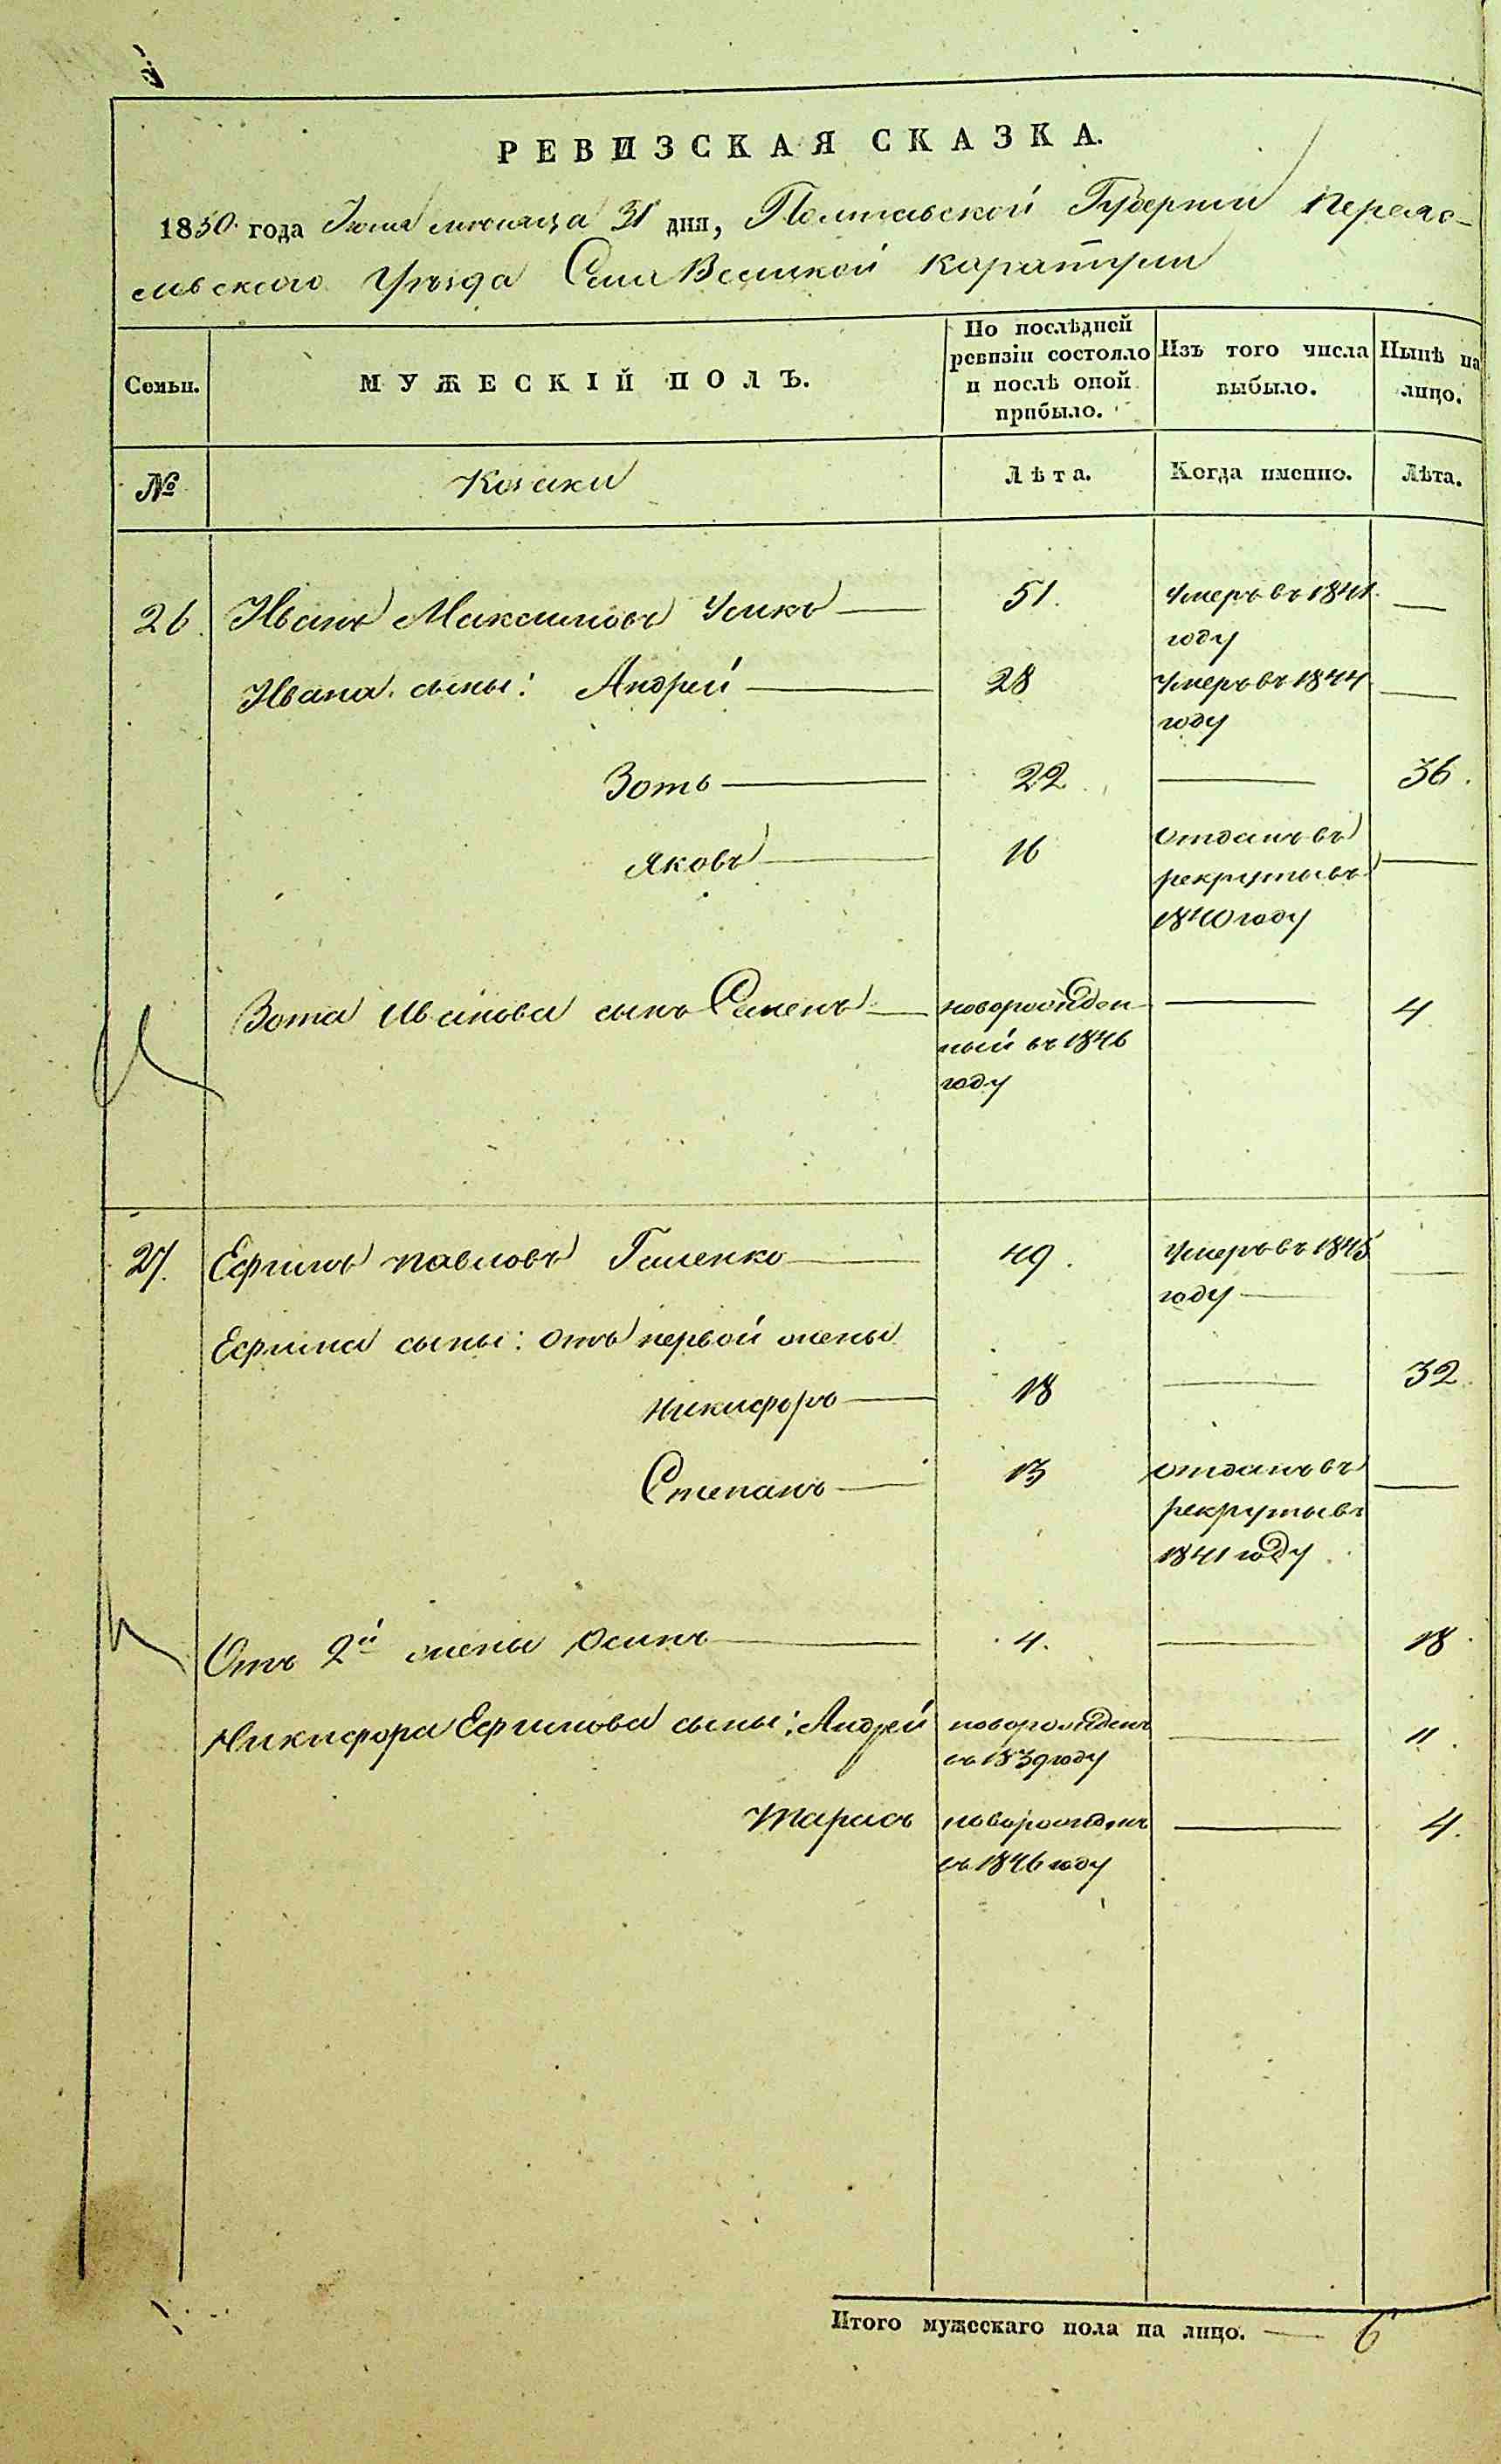 РЕВИЗСКАЯ СКАЗКА.
1850 года Июля месяца 31 дня, Полтавской Губернии Переяс-
лавского Уезда Села Великой Каратули
Семьи.
МУЖЕСКІЙ ПОЛЪ.
По послѣдней
ревизіи состояло
и послѣ оной
прибыло.
Изъ того числа
выбыло.
Нынѣ на
лицо.
№
Козаки
Лѣта.
Когда именно.
Лѣта.
26. Иванъ Максимовъ 51. Умеръ въ 1841 —
году
Ивана сыны: Андрей — 28 Умеръ въ 1844 —
году
Зотъ — 22 — 36.
Яковъ — 16 отданъ въ —
рекруты въ
1840 году
Зота Иванова сынъ Семенъ — новорожден- — 4
ный въ 1846
году
27. Ефимъ Павловъ Галенко — 49. Умеръ въ 1845 —
году —
Ефима сыны: отъ первой жены
Никифоръ — 18 — 32.
Степанъ — 13 отданъ въ —
рекруты въ
1841 году
Отъ 2й жены Осипъ — 4. — 18.
Никифора Ефимова сыны: Андрей новорожденъ — 11.
въ 1839 году
Тарасъ новорожденъ — 4.
въ 1846 году
Итого мужескаго пола на лицо. — 6